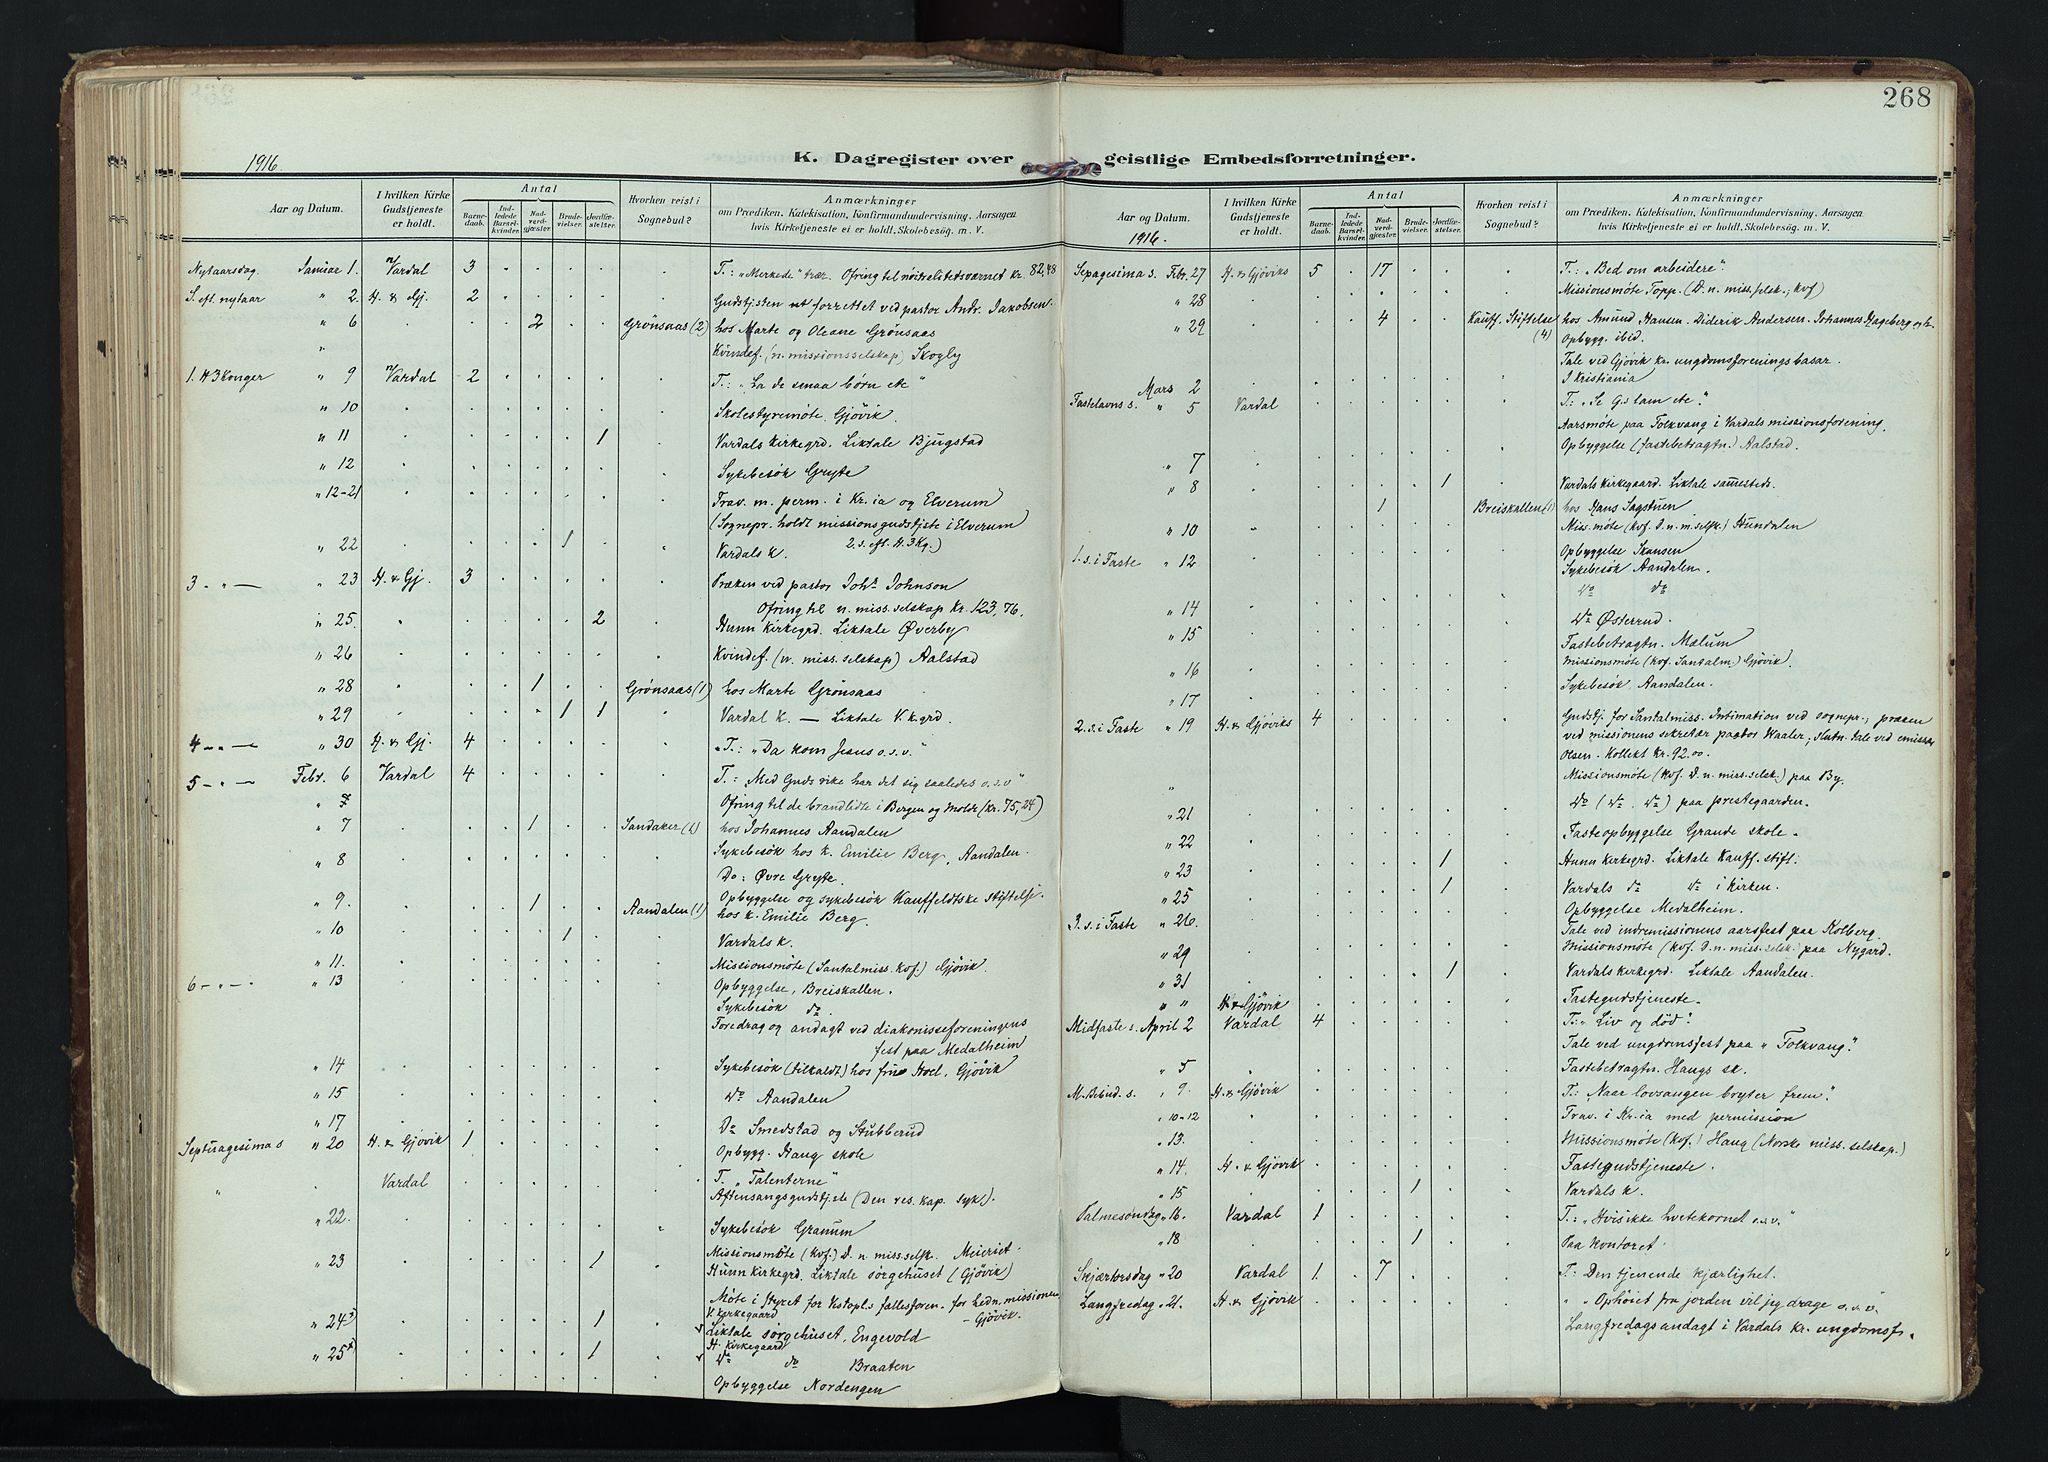 268
1916.
K. Dagregister over geistlige Embedsforretninger.
Aar og Datum.
I hvilken Kirke Gudstjeneste er holdt.
Antal
Barnedaab.
Indledede Barselkvinder.
Nadverdgjæster.
Brudevielser.
Jordfæstelser.
Hvorhen reist i Sognebud?
Anmærkninger
om Prædiken. Katekisation, Konfirmandundervisning. Aarsagen
hvis Kirketjeneste ei er holdt. Skolebesøg. m. V.
Nytaarsdag. Januar 1. Vardal 3 T.: „Merkede" trær. Ofring til nöitralitetsvernet kr. 82,48
S. eft. nytaar " 2. H. & Gj. 2 Gudstjsten utforrettet ved pastor Andr. Jakobsen.
" 6 2 Grønsaas (2) hos Marte og Oleane Grønsaas
" Kvindef. (n. missionsselskap) Skogly
1. H3Konger " 9 Vardal 2 T.: „La de smaa børn etc"
" 10 Skolestyremöte, Gjövik
" 11 1 Vardals kirkegrd. Liktale Bjugstad
" 12 Sykebesök Gryte
" 12-21 Trav. m. perm. i Kr.ia og Elverum
(Sognepr. holdt missionsgudstjste i Elverum)
" 22 1 Vardals k. 2. s. eft. H. 3 Kg.)
3 - " - " 23 H. & Gj. 3 Præken ved pastor Joh. Johnson
Ofring til n. miss. selskap Kr. 123,76.
" 25. 2 Hunn kirkegrd. Liktale Øverby
" 26 Kvindef. (n. miss. selskap) Aalstad
" 28 1 Grønsaas (1) hos Marte Grønsaas
" 29 1 1 Vardal k. — Liktale V. k.grd.
4 - " - " 30 H. & Gj. 4 „T.: „Da kom Jesus o.s.v."
5 - " - Febr. 6 Vardal 4 T.: „Med Guds rike har det sig saaledes o.s.v"
Ofring til de brandlidte i Bergen og Molde (kr. 75,24)
" 7 1 Sandaker (1) hos Johannes Aandalen
Sykebesök hos k. Emilie Berg, Aandalen.
" 8 Do: Øvre Gryte.
Opbyggelse og sykebesök Kauffeldtske Stiftelse.
" 9. 1 Aandalen (1) hos k. Emilie Berg.
" 10 1 Vardals k.
" 11. Missionsmöte (Santalmiss. kvf.) Gjövik.
6 - " - " 13 Opbyggelse, Breiskallen.
Sykebesök do.
Foredrag og andagt ved diakonisseforeningens
fest paa Medalheim
" 14 Sykebesök (tilkaldt) hos frue Hoel, Gjövik
" 15 Do Aandalen
" 17 Do Smedstad og Stubberud
Septuagesima s " 20 H. & Gjövik 1 Opbygg. Haug skole
T. „Talenterne"
" Vardal Aftensangsgudstjste (Den res. kap. syk.).
" 22. Sykebesök Granum
Missionsmöte (kvf.) D. n. miss. selsk. Meieriet.
" 23 1 Hunn kirkegrd. Liktale sørgehuset (Gjövik)
Möte i styret for Vestopl.s fællesforen. for hedn. missionen
— Gjövik.
" 24 1 V. kirkegaard Liktale sørgehuset, Engevold
" 25 1 H. kirkegaard Do do Braaten
Opbyggelse Nordengen
Aar og Datum.
1916.
I hvilken Kirke Gudstjeneste er holdt.
Antal
Barnedaab.
Indledede Barselkvinder.
Nadverdgjæster.
Brudevielser.
Jordfæstelser.
Hvorhen reist i Sognebud?
Anmærkninger
om Prædiken. Katekisation, Konfirmandundervisning. Aarsagen
hvis Kirketjeneste ei er holdt. Skolebesøg. m. V.
Sepagesima s. Febr. 27 H. & Gjöviks 5 17 T.: „Bed om arbeidere".
" 28 Missionsmöte Topp. (D. n. miss. selsk.; kvf)
" 29 4 Kauff. Stiftelse (4) hos Amund Hansen. Diderik Andersen. Johannes Hageberg og
Opbygg. ibid.
Tale ved Gjövik kr. ungdomsforenings basar.
Mars 2 I Kristiania
Fastelavns s. " 5 Vardal T: „Se G.s lam etc."
Aarsmöte paa Folkvang i Vardals missionsforening.
Opbyggelse (fastebetragtn.) Aalstad.
" 7
" 8 1 Vardals kirkegaard. Liktale sammesteds.
1 Breiskallen (1) hos Hans Sagstuen
" 10 Miss. möte (kvf. D. n. m. selsk.) Hundalen
Opbyggelse Skansen
1. s. i Faste " 12 Sykebesök Aandalen.
Do do
" 14 Do Østerrud.
" 15 Fastebetragtn. Mælum
Missionsmöte (kvf. Santalm.) Gjövik.
" 16 Sykebesök, Aandalen.
" 17
2. s. i Faste " 19 H. & Gjöviks 4 Gudstj. for Santalmiss. Intimation ved sognepr., præken
ved missionens sekretær pastor Waaler; slutn. tale ved emissær
Olsen. Kollekt Kr. 92.00.
Missionsmöte (kvf. D. n. miss. selsk.) paa By.
" Do (Do. Do) paa prestegaarden.
" 21 Fasteopbyggelse Grande skole.
" 22
" 23 1 Hunn kirkegrd. Liktale Kauff. stift.
" 25 1 Vardals do Do i kirken.
Opbyggelse Medalheim.
3. s. i Faste " 26. Tale ved indremissionens aarsfest paa Kolberg.
" 29 Missionsmöte (kvf. D. n. miss. selsk.) paa Nygard.
" 31 1 Vardals kirkegrd. Liktale Aandalen.
" " H & Gjövik Fastegudstjeneste.
Midfaste s. April 2 Vardal 4 T: „Liv og död".
Tale ved ungdomsfest paa „Folkvang".
" 5 Fastebetragtn. Haugs sk.
M. Bebud. s. " 9. H. & Gjövik T: „Naar lovsangen bryter frem".
" 10-12 Trav. i Kr.ia med permission
" 13. Missionsmöte (kvf.) Haug (Norske miss. selskap.)
" 14. H. & Gjövik Fastegudstjeneste.
" 15 1 Vardals k.
Palmesöndag " 16. Vardal 1 T.: „Hvis ikke hvetekornet o.s.v."
" 18 1 Paa kontoret.
Skjærtorsdag " 20 Vardal 1 7 T: Den tjenende kjærlighet.
Langfredag " 21. H. & Gjövik " „Ophöiet fra jorden vil jeg drage o.s.v".
Langfredagsandagt i Vardals kr. ungdomsf.